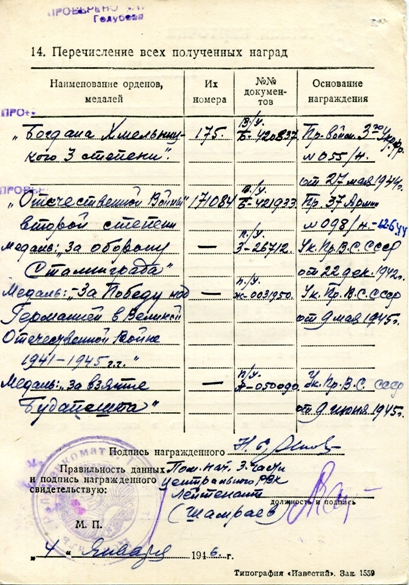 ПРОВЕРЕНО
Голубева
14. Перечисление всех полученных наград
Наименование орденов, медалей
Их номера
№№ документов
Основание награждения
ПРО
„Богдана Хмельниц-
кого 3 степени".
175.
в/у.
Б-420837
Пр. войск. 3го Укр. фр.
№ 055/н.
от 27 мая 1944г.
ПРОВЕРЕ
„Отечественной Войны"
второй степени
171084
в/у.
Б-421933
Пр. 37 Армии
№ 098/н.-
Медаль: „За оборону
Сталинграда"
—
п/у.
З-26712.
Ук. Пр. В. С. СССР
от 22 дек. 1942г.
Медаль: „За Победу над
Германией в Великой
Отечественной Войне
1941-1945 г.г."
—
п/у.
Ж-0031950.
Ук. Пр. В. С. СССР
от 9 мая 1945г.
Медаль: „за взятие
Будапешта"
—
п/у.
-050090.
Ук. Пр. В. С. СССР
от 9 июня 1945г.
Подпись награжденного
Правильность данных
и подпись награжденного
свидетельствую:
Пом. нач. 3. части
центрального РВК
Лейтенант
(Шамраев)
должность и подпись
М. П.
„4" Января 1946 г.
Типография «Известий». Зак. 1539